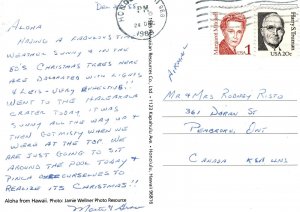 Dec 25
Aloha
Having a fabulous time
weather sunny & in the
80's Christmas trees here
are decorated with lights
& leis - very effective!!
Went to the Haleakala
crater today it was
sunny all the way up &
then got misty when we
were at the top. We
are just going to sit
around the pool today &
pinch ourselves to
realize its Christmas!!
Aloha from Hawaii. Photo: Jamie Wellner Photo Resource
HON
PM
1988
Margaret Mitchell
USA 1
Harry S. Truman
USA 20c
Airmail
Mr & Mrs Rodney Risto
361 Doran St
Pembroke, Ont
Canada
Honolulu, Hawaii 96818